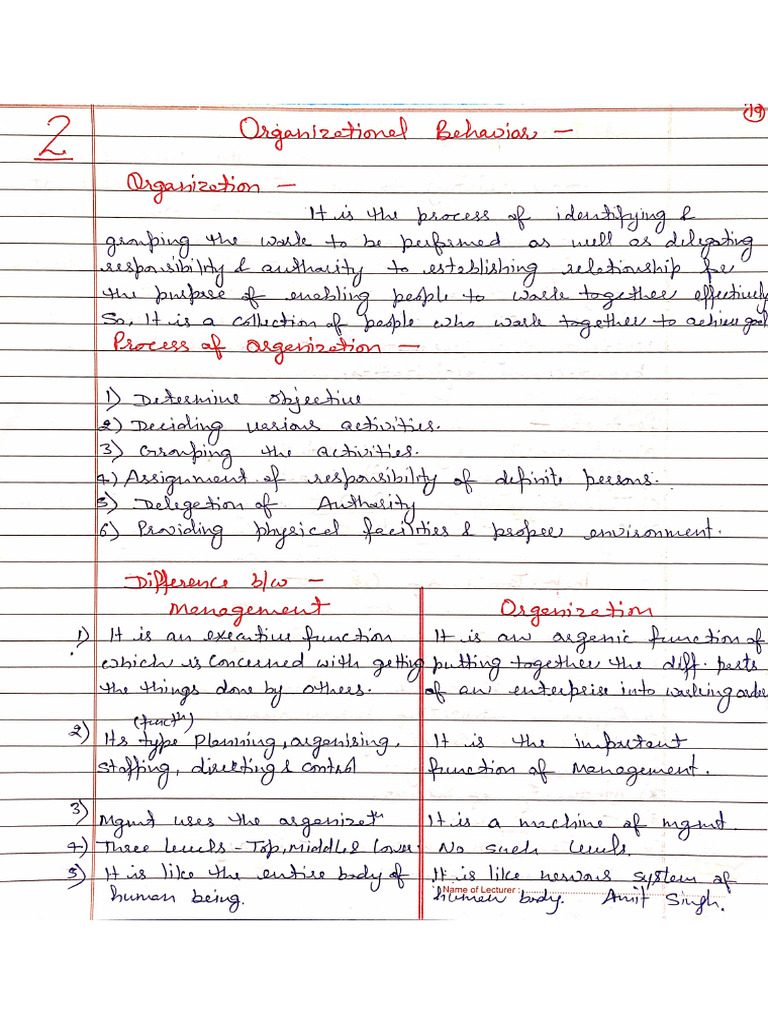 19
2
Organizational Behavior —
Organization —
It is the process of identifying &
grouping the work to be performed as well as delegating
responsibility & authority to establishing relationship for
the purpose of enabling people to work together effectively
So, It is a collection of people who work together to achieve goal
Process of organization —
1) Determine objective
2) Deciding various activities.
3) Grouping the activities.
4) Assignment of responsibility of definite persons.
5) Delegetion of Authority
6) Providing physical facilities & proper environment.
Difference b/w —
Management
Organization
1) It is an executive function
which is concerned with getting
the things done by others.
It is an organic function of
putting together the diff. parts
of an enterprise into working order
2) Its type (functn) Planning, organising,
staffing, directing & control
It is the important
function of Management.
3) Mgmt uses the organizatn
It is a machine of mgmt.
4) Three levels - Top, Middle & lower.
No such levels.
5) It is like the entire body of
human being.
It is like nervous system of
human body. Amit Singh.
Name of Lecturer :